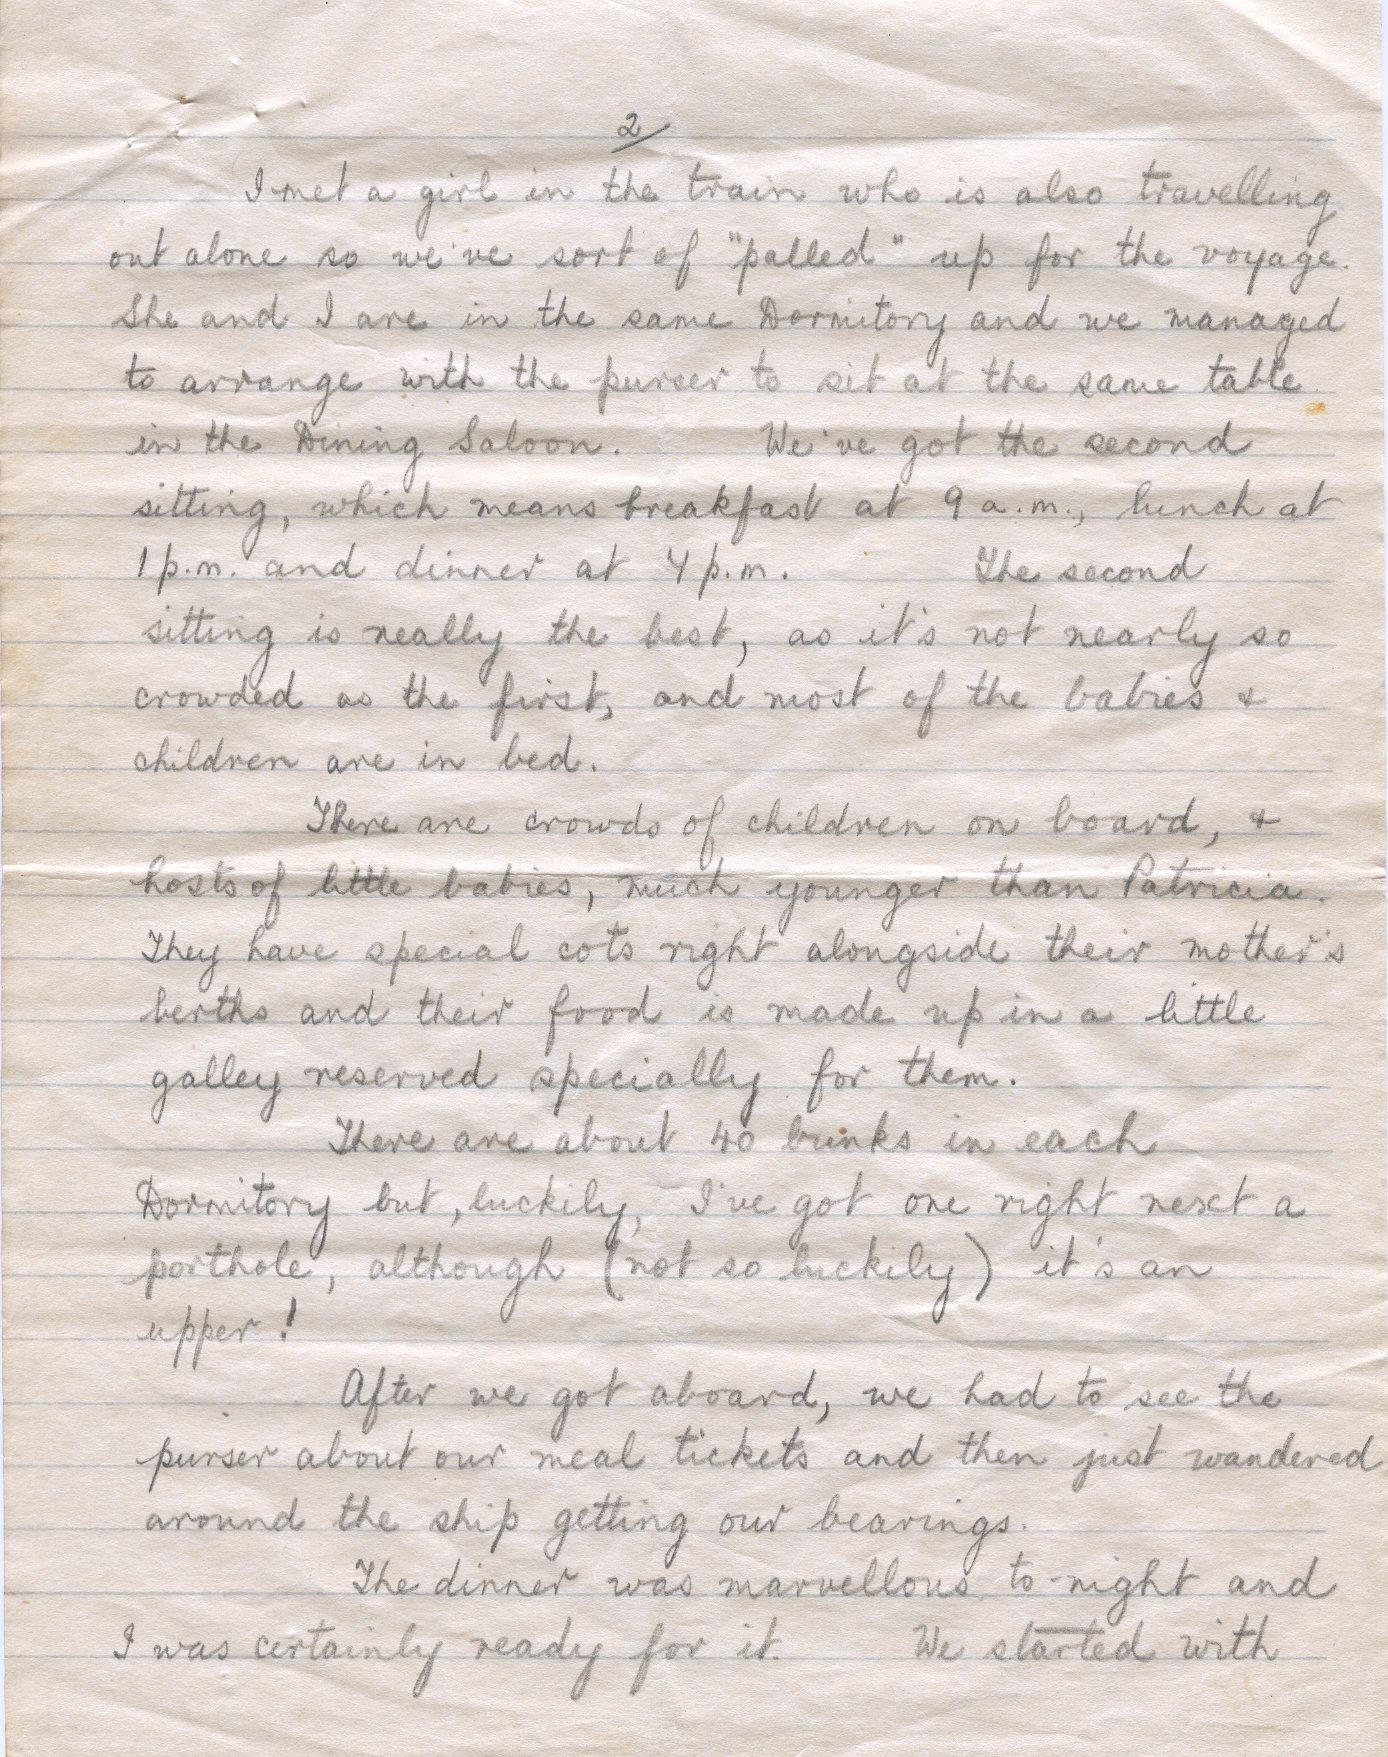 2/
I met a girl in the train who is also travelling
out alone so we've sort of "palled" up for the voyage.
She and I are in the same Dormitory and we managed
to arrange with the purser to sit at the same table
in the Dining Saloon. We've got the second
sitting, which means breakfast at 9 a.m., lunch at
1 p.m. and dinner at 7 p.m. The second
sitting is really the best, as it's not nearly so
crowded as the first, and most of the babies &
children are in bed.
There are crowds of children on board, &
hosts of little babies, much younger than Patricia.
They have special cots right alongside their mother's
berths and their food is made up in a little
galley reserved specially for them.
There are about 40 bunks in each
Dormitory but, luckily, I've got one right next a
porthole, although (not so luckily) it's an
upper!
After we got aboard, we had to see the
purser about our meal tickets and then just wandered
around the ship getting our bearings.
The dinner was marvellous to-night and
I was certainly ready for it. We started with